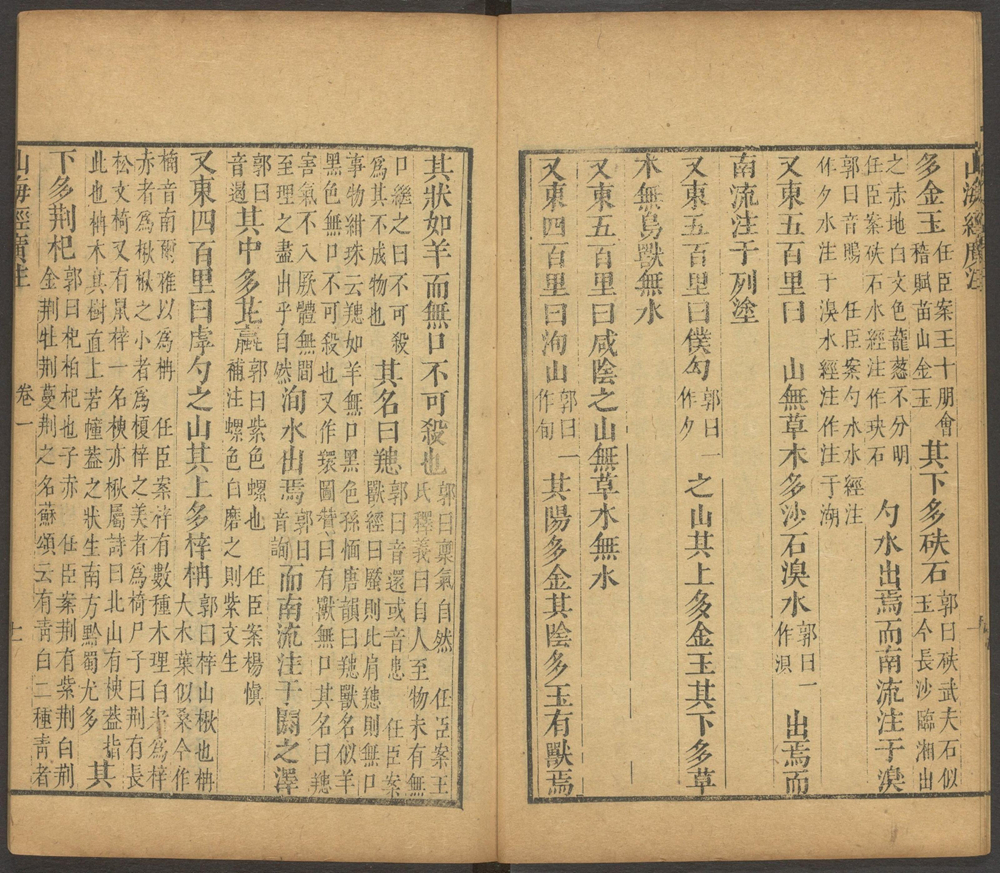 山海經廣注
多金玉任臣案王十朋會稽賦苗山金玉其下多砆石郭曰砆武夫石似玉今長沙臨湘出
之赤地白文色蘢蔥不分明任臣案砆石水經注作玦石勺水出焉而南流注于湨
郭曰音鵙 任臣案勺水水經注作夕水注于湨水經注作注于湖
又東五百里曰 山無草木多沙石湨水郭曰一作浿出焉而
南流注于列塗
又東五百里曰僕勾郭曰一作夕之山其上多金玉其下多草
木無鳥獸無水
又東五百里曰咸陰之山無草木無水
又東四百里曰洵山郭曰一作旬其陽多金其陰多玉有獸焉
其狀如羊而無口不可殺也郭曰稟氣自然 任臣案王氏釋義曰自人至物未有無
口繼之曰不可殺爲其不成物也其名曰䍺郭曰音還或音患 任臣案獸經曰蟨則比肩䍺則無口
事物紺珠云䍺如羊無口黑色孫愐唐韻曰䍺獸名似羊黑色無口不可殺也又作圖贊曰有獸無口其名曰䍺
害氣不入厥體無間至理之盡出乎自然洵水出焉郭曰音詢而南流注于閼之澤
郭曰音遏其中多芘蠃郭曰紫色螺也 任臣案楊慎補注螺色白磨之則紫文生
又東四百里曰虖勺之山其上多梓枏郭曰梓山楸也枏大木葉似桑今作
楠音南爾雅以爲枏 任臣案梓有數種木理白者爲梓赤者爲楸楸之小者爲榎梓之美者爲椅尸子曰荆有長
松文椅又有鼠梓一名楰亦楸屬詩曰北山有楰蓋指此也枏木其樹直上若幢蓋之狀生南方黔蜀尤多其
下多荆杞郭曰杞枸杞也子赤 任臣案荆有紫荆白荆金荆牡荆蔓荆之名蘇頌云有青白二種青者
山海經廣注 卷一